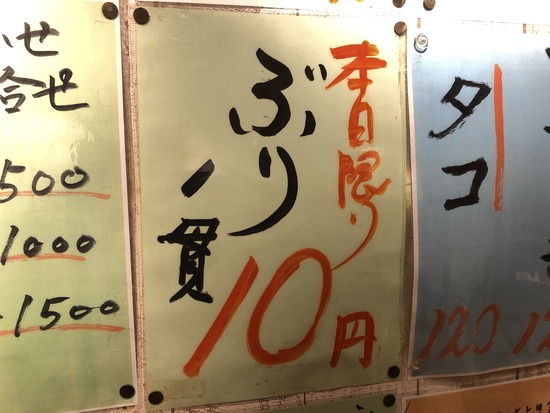 本日限り
ぶり
一貫
10円
タコ
120
12
せ
合せ
500
1000
1500